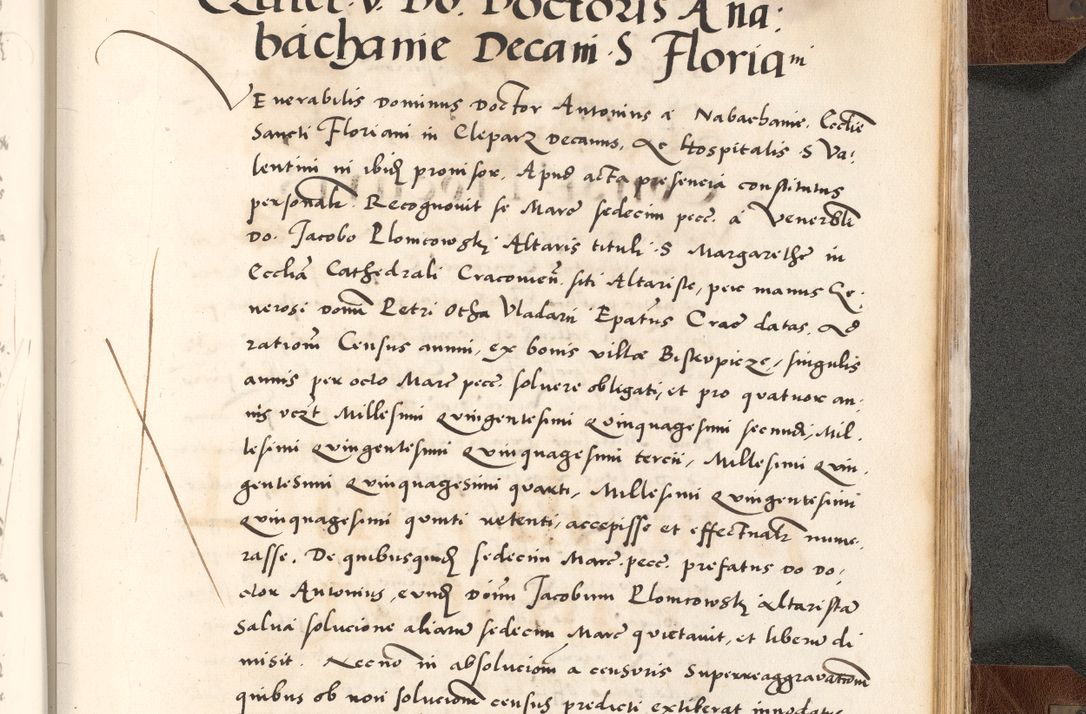 Quiet. v. Do. Doctoris A Na:
bachanie Decani S Floriani
Venerabilis Dominus Doctor Antonius á Nabachanie, Ecclie
Sancti Floriani in Cleparz Decanus, Ac Hospitalis S Va:
lentini in ibid provisor, Apud acta presencia constitutus
personalr. Recognovit se Marc sedecim pecc. á Venerabli
Do. Jacobo Plomcowski Altaris tituli S Margarethe in
Ecclia Cathedrali Cracovien. siti Altariste, per manus Ge:
nerosi Domi Petri Otha Vladarii Epatus Crac datas, Ad
rationem Census annui, ex bonis villae Biskvpieze, singulis
annis per octo Marc pecc. solvere obligati, et pro quatuor an:
nis vczt Millesimi Quingentesimi Quinquagesimi secundi, Mil:
lesimi Quingentesimi Quinquagesimi tercii, Millesimi Quin:
gentesimi Quinquagesimi quarti, Millesimi Quingentesimi
Quinquagesimi quinti retenti, accepisse et effectualr nume:
rasse. De quibusquid sedecim Marc. pecc. prefatus Do Do:
ctor Antonius, eund Domi Jacobum Plomcowski Altarista
Salva solucione aliaru sedecim Marc quietavit, et liberu di
misit. Necno in absolucionem a censuris Superreaggravationu
quibus ob non solucionem census predicti extiterat innodatus